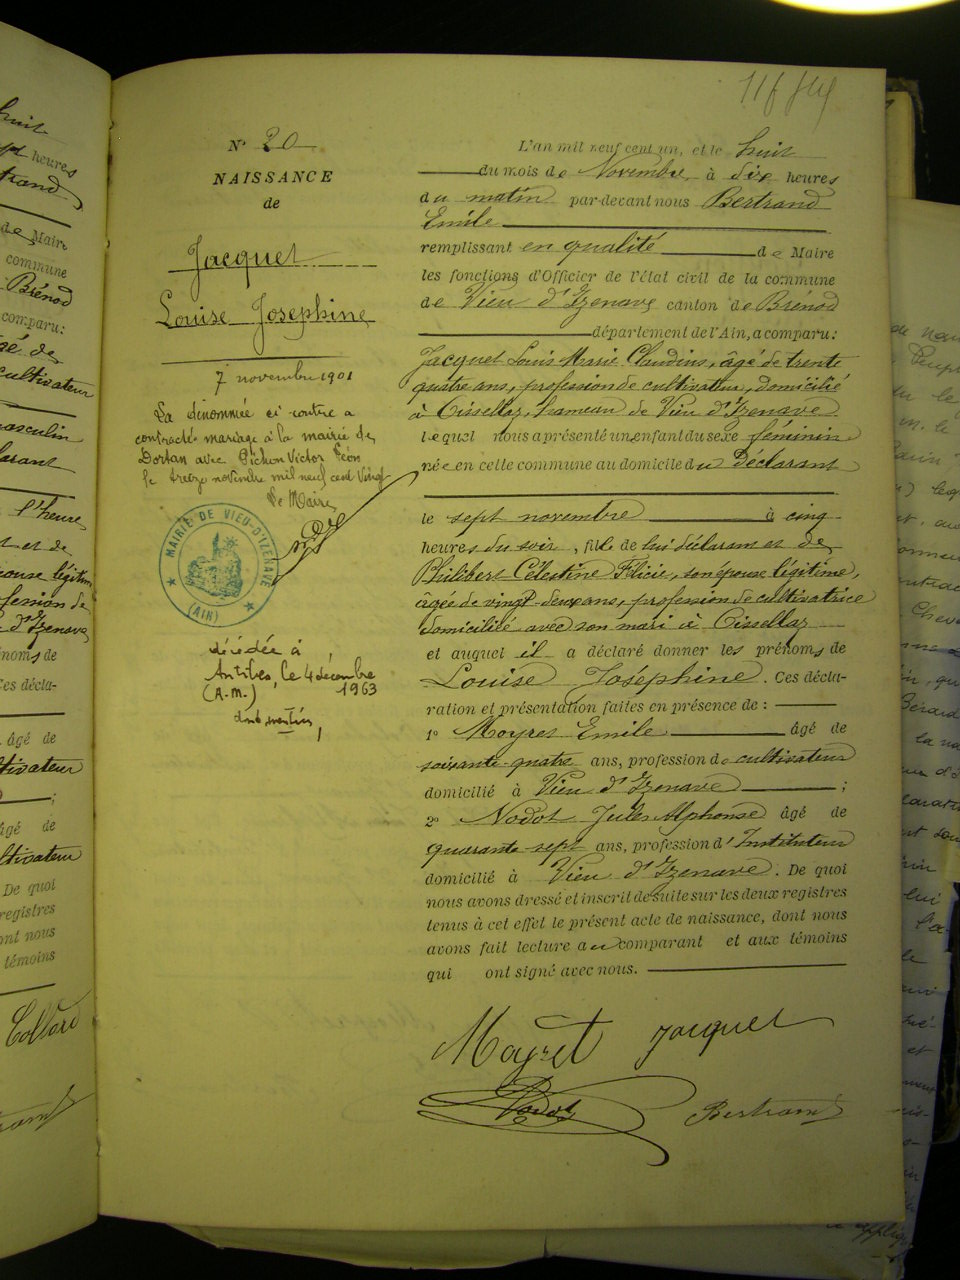 N° 20
NAISSANCE
de
Jacquet
Louise Josephine
7 novembre 1901
La dénommée ci contre a
contracté mariage à la mairie de
Dortan avec Pichon Victor Léon
le treize novembre mil neuf cent vingt
Le Maire,
MAIRIE DE VIEU-D'IZENAVE
(AIN)
décédée à
Antibes, le 4 décembre
(A.-M.) 1963
dont mention,
L'an mil neuf cent un, et le huit
du mois de Novembre à dix heures
du matin par-devant nous Bertrand
Emile
remplissant en qualité de Maire
les fonctions d'Officier de l'état civil de la commune
de Vieu d'Izenave canton de Brénod
département de l'Ain, a comparu:
Jacquet Louis Marie Claudius, âgé de trente
quatre ans, profession de cultivateur, domicilié
à Cisselaz, hameau de Vieu d'Izenave
lequel nous a présenté un enfant du sexe féminin
née en cette commune au domicile du Déclarant
le sept novembre à cinq
heures du soir, fille de lui déclarant et de
Philibert Célestine Félicie, son épouse légitime,
âgée de vingt-deux ans, profession de cultivatrice
domiciliée avec son mari à Cisselaz
et auquel il a déclaré donner les prénoms de
Louise Joséphine. Ces décla-
ration et présentation faites en présence de :
1° Moyret Emile âgé de
soixante-quatre ans, profession de cultivateur
domicilié à Vieu d'Izenave ;
2° Nodot Jules Alphonse âgé de
quarante-sept ans, profession d'Instituteur
domicilié à Vieu d'Izenave. De quoi
nous avons dressé et inscrit de suite sur les deux registres
tenus à cet effet le présent acte de naissance, dont nous
avons fait lecture au comparant et aux témoins
qui ont signé avec nous.
Moyret Jacquet
Nodot Bertrand